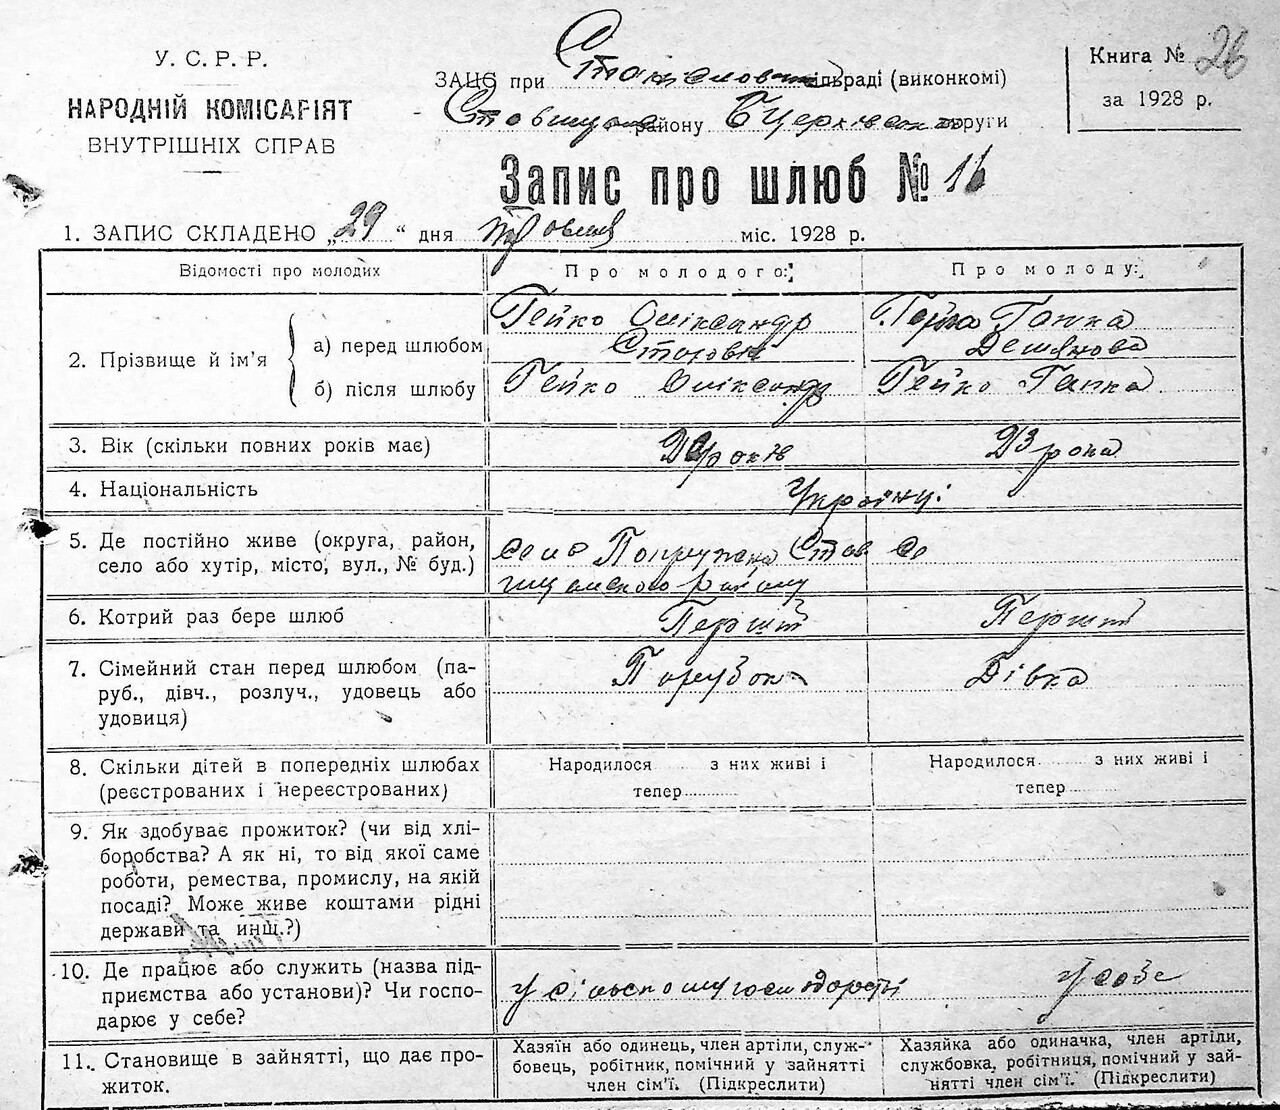 У. С. Р. Р.
НАРОДНІЙ КОМІСАРІЯТ
ВНУТРІШНІХ СПРАВ
ЗАЦС при сільраді (виконкомі)
району БЦерківськ округи
Книга № 26
за 1928 р.
Запис про шлюб № 16
1. ЗАПИС СКЛАДЕНО „29“ дня міс. 1928 р.
Відомості про молодих
Про молодого:
Про молоду:
2. Прізвище й ім'я
а) перед шлюбом
Гейко Олександр
Ганка
б) після шлюбу
Гейко Олександр
Гейко Ганка
3. Вік (скільки повних років має)
років
23 рока
4. Національність
Українці
5. Де постійно живе (округа, район,
село або хутір, місто, вул., № буд.)
село Став
району
6. Котрий раз бере шлюб
Перший
Перший
7. Сімейний стан перед шлюбом (па-
руб., дівч., розлуч., удовець або
удовиця)
Парубок
Дівка
8. Скільки дітей в попередніх шлюбах
(реєстрованих і нереєстрованих)
Народилося з них живі і
тепер
Народилося з них живі і
тепер
9. Як здобуває прожиток? (чи від хлі-
боробства? А як ні, то від якої саме
роботи, ремества, промислу, на якій
посаді? Може живе коштами рідні
держави та инш.?)
10. Де працює або служить (назва під-
приємства або установи)? Чи госпо-
дарює у себе?
у сільскому господарстві
у себе
11. Становище в зайнятті, що дає про-
житок.
Хазяїн або одинець, член артіли, служ-
бовець, робітник, помічний у зайнятті
член сім'ї. (Підкреслити)
Хазяйка або одиначка, член артіли,
службовка, робітниця, помічний у зай-
нятті член сім'ї. (Підкреслити)